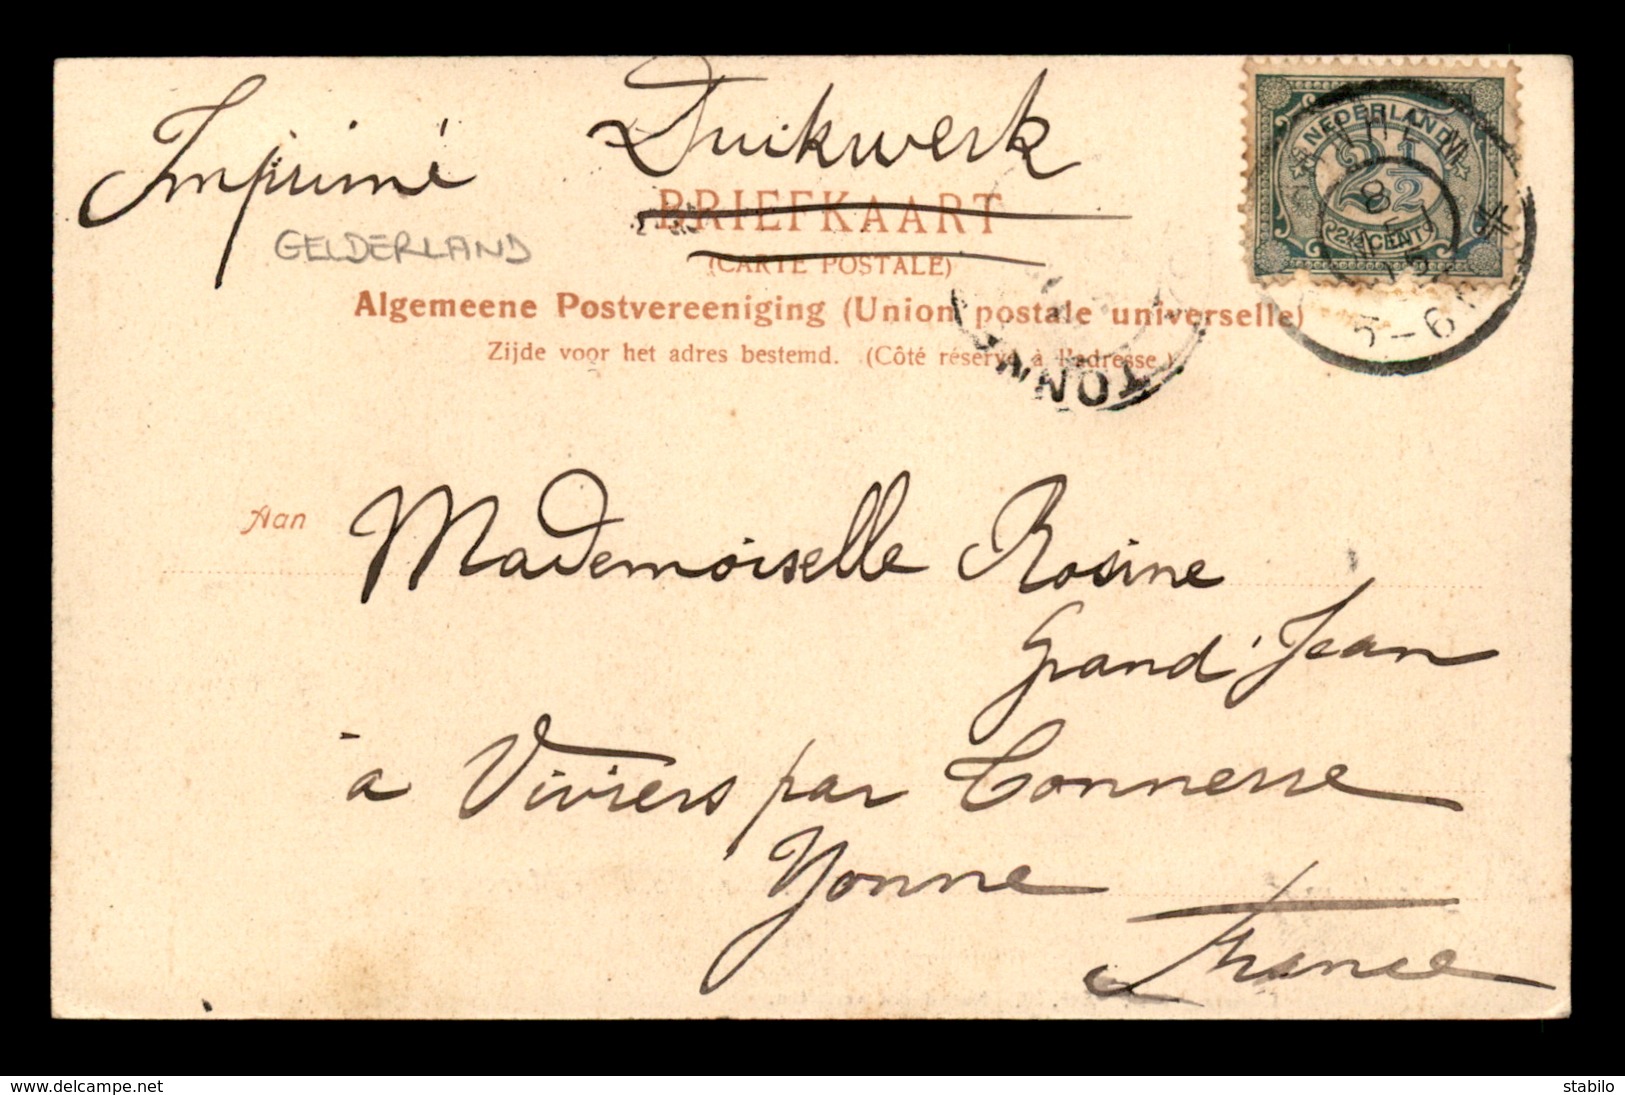 Imprimé Drukwerk
GELDERLAND
BRIEFKAART
(CARTE POSTALE)
Algemeene Postvereeniging (Union postale universelle)
Zijde voor het adres bestemd. (Côté réservé à l'adresse.)
NEDERLAND
2½
2½ CENT
8
5-6
TONN
Aan Mademoiselle Rosine
Grand'Jean
à Viviers par Tonnerre
Yonne
France
www.delcampe.net
stabilo